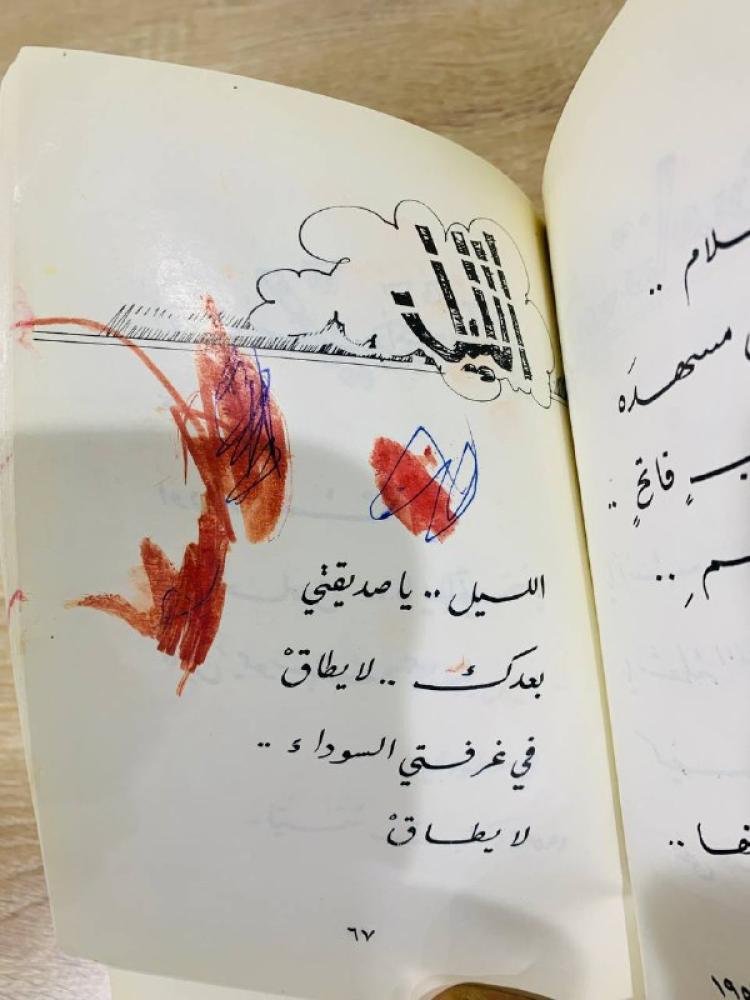 الليل
الليل .. يا صديقتي
بعدك .. لا يطاقْ
في غرفتي السوداء ..
لا يطاقْ
٦٧
سلام ..
مسهدَه
فاتحٍ ..